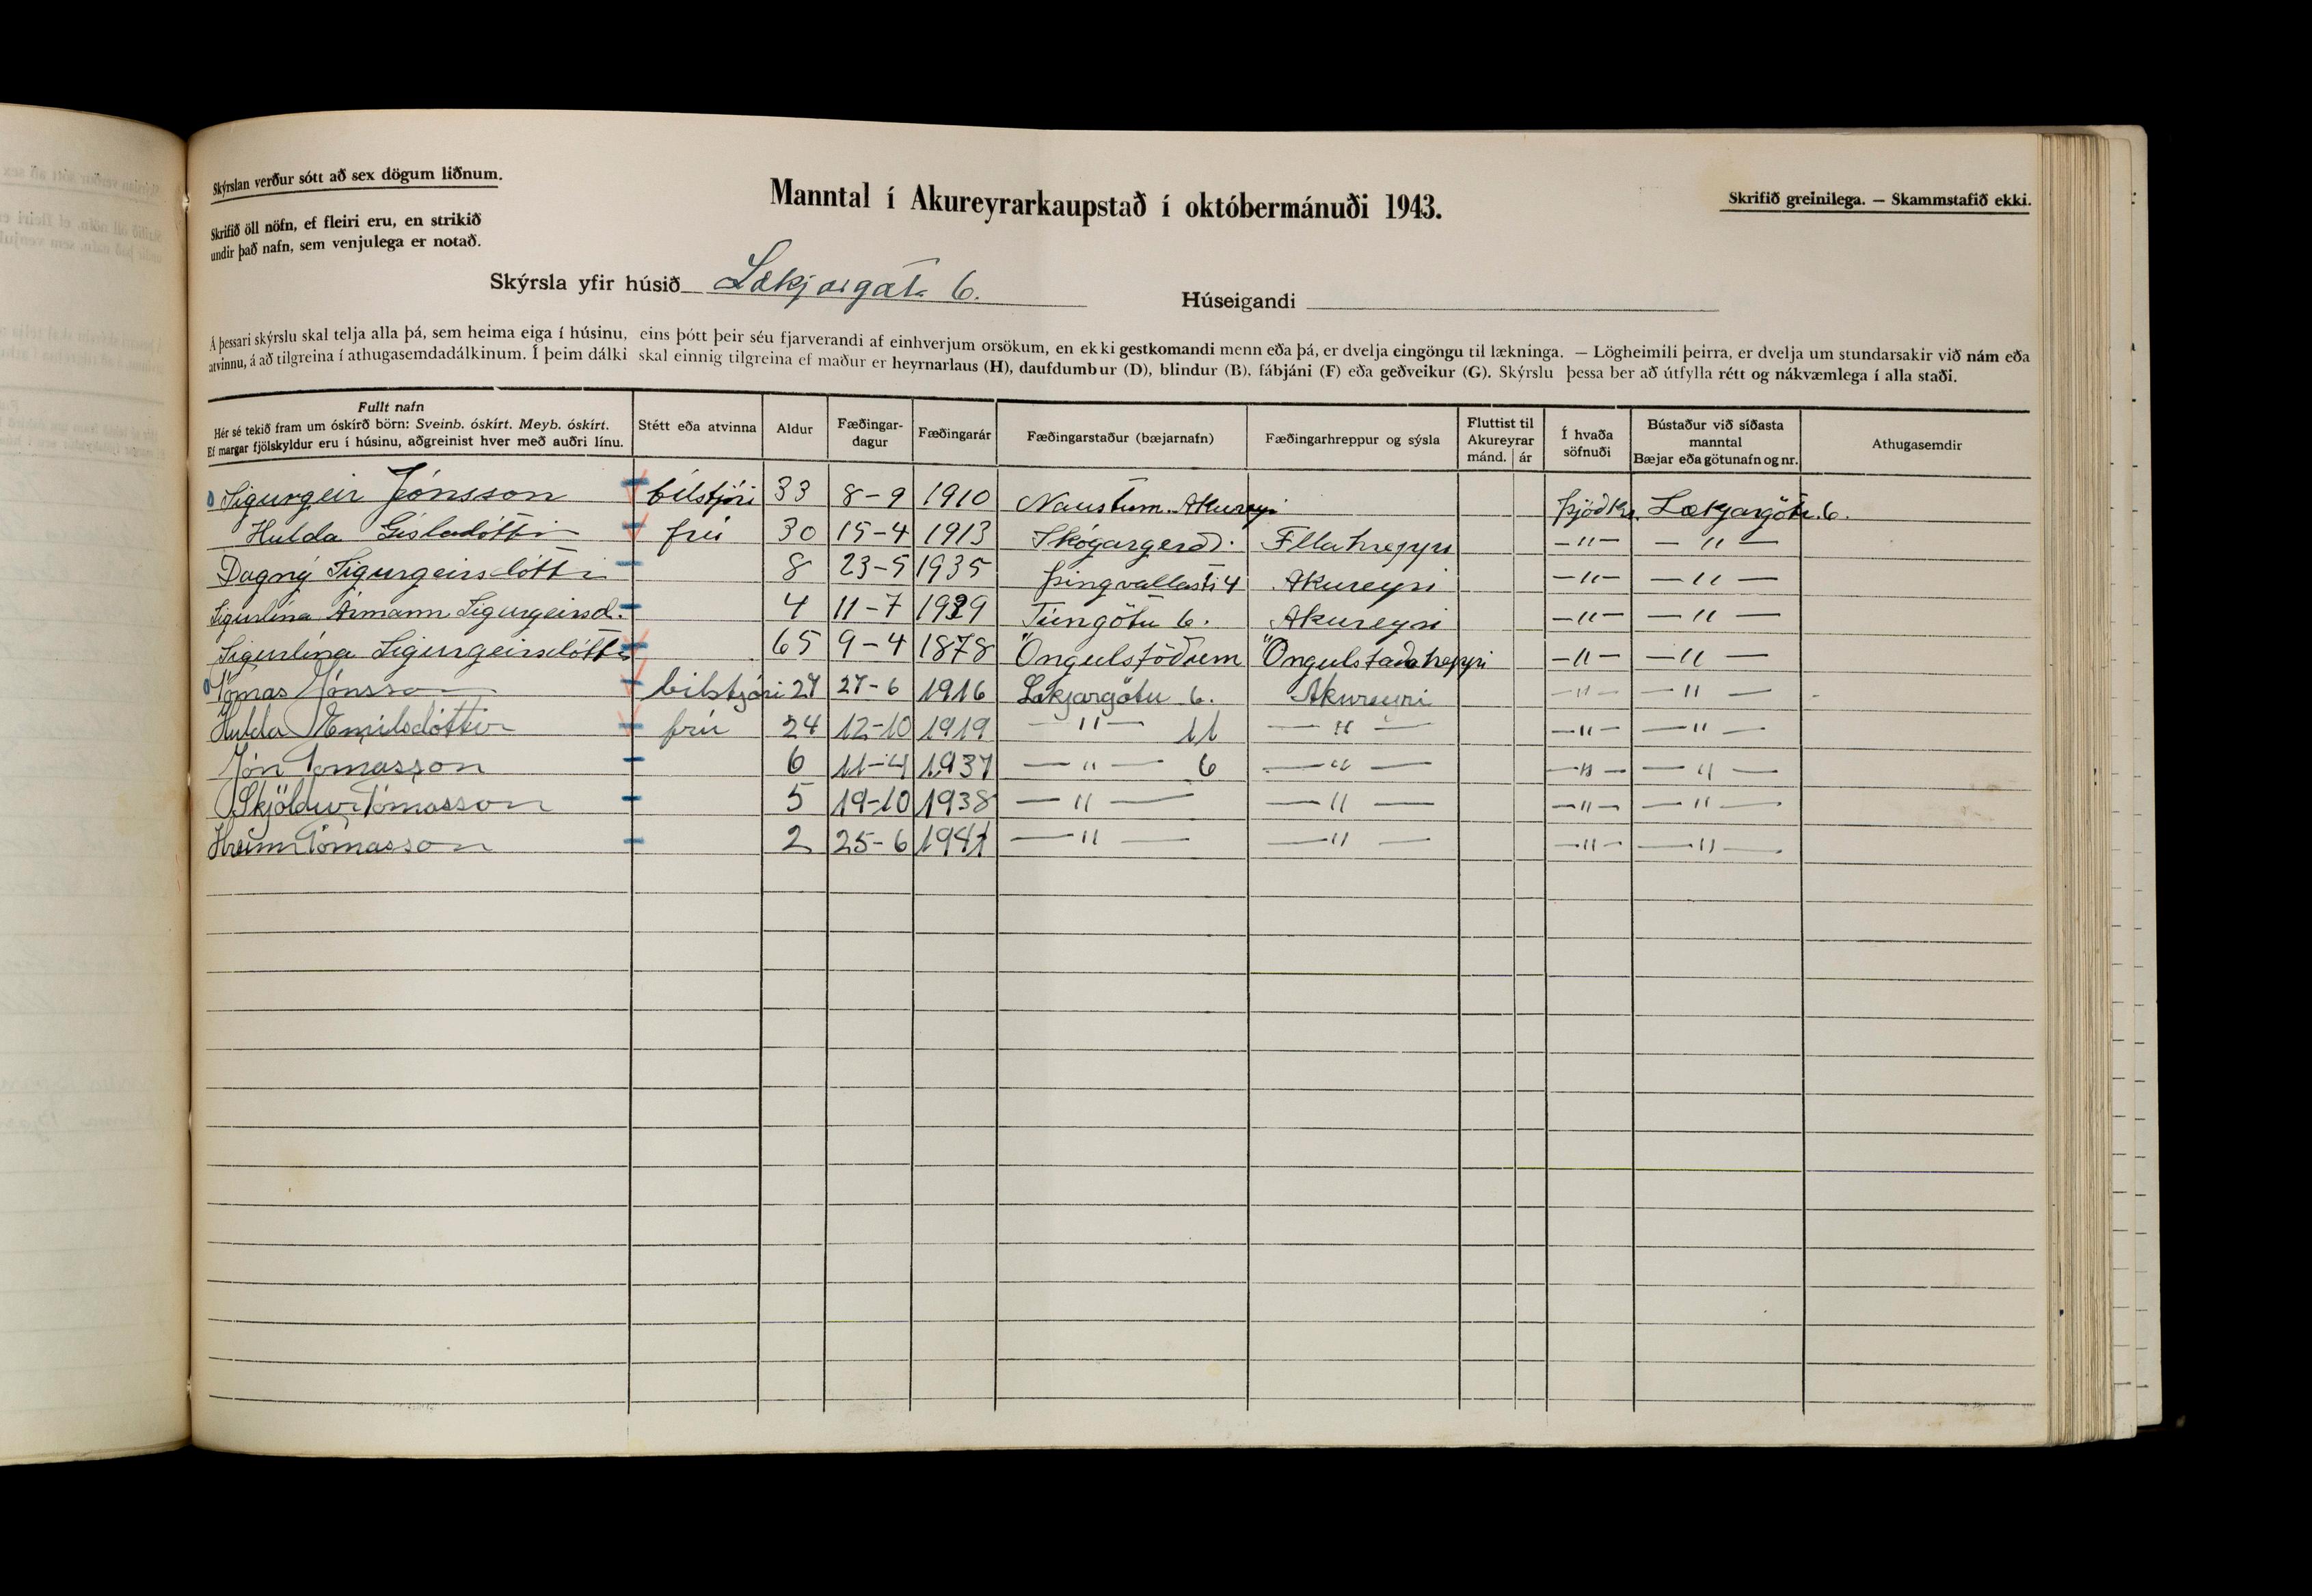 Skýrslan verður sótt að sex dögum liðnum.
Skrifið öll nöfn, ef fleiri eru, en strikið
undir það nafn, sem venjulega er notað.
Manntal í Akureyrarkaupstað í októbermánuði 1943.
Skrifið greinilega. — Skammstafið ekki.
Skýrsla yfir húsið Lækjargata 6.
Húseigandi
Á þessari skýrslu skal telja alla þá, sem heima eiga í húsinu, eins þótt þeir séu fjarverandi af einhverjum orsökum, en ekki gestkomandi menn eða þá, er dvelja eingöngu til lækninga. — Lögheimili þeirra, er dvelja um stundarsakir við nám eða
atvinnu, á að tilgreina í athugasemdadálkinum. Í þeim dálki skal einnig tilgreina ef maður er heyrnarlaus (H), daufdumbur (D), blindur (B), fábjáni (F) eða geðveikur (G). Skýrslu þessa ber að útfylla rétt og nákvæmlega í alla staði.
Fullt nafn
Hér sé tekið fram um óskírð börn: Sveinb. óskírt. Meyb. óskírt.
Ef margar fjölskyldur eru í húsinu, aðgreinist hver með auðri línu.
Stétt eða atvinna
Aldur
Fæðingar-
dagur
Fæðingarár
Fæðingarstaður (bæjarnafn)
Fæðingarhreppur og sýsla
Fluttist til
Akureyrar
mánd. ár
Í hvaða
söfnuði
Bústaður við síðasta
manntal
Bæjar eða götunafn og nr.
Athugasemdir
Sigurgeir Jónsson bílstjóri 33 8-9 1910 Naustum. Akureyri Þjóðk. Lækjargötu 6.
Hulda Gísladóttir frú 30 15-4 1913 Skógargerði. Fellahreppi —"— —"—
Dagný Sigurgeirsdóttir 8 23-5 1935 Þingvallastr 4 Akureyri —"— —"—
Sigurlína Ármann Sigurgeirsd. 4 11-7 1939 Túngötu 6. Akureyri —"— —"—
Sigurlína Sigurgeirsdóttir 65 9-4 1878 Öngulstöðum Öngulstaðahreppi —"— —"—
Tómas Jónsson bílstjóri 27 27-6 1916 Lækjargötu 6. Akureyri —"— —"—
Hulda Emilsdóttir frú 24 12-10 1919 —"— 11 —"— —"— —"—
Jón Tómasson 6 11-4 1937 —"— 6 —"— —"— —"—
Skjöldur Tómasson 5 19-10 1938 —"— —"— —"— —"—
Hreinn Tómasson 2 25-6 1941 —"— —"— —"— —"—